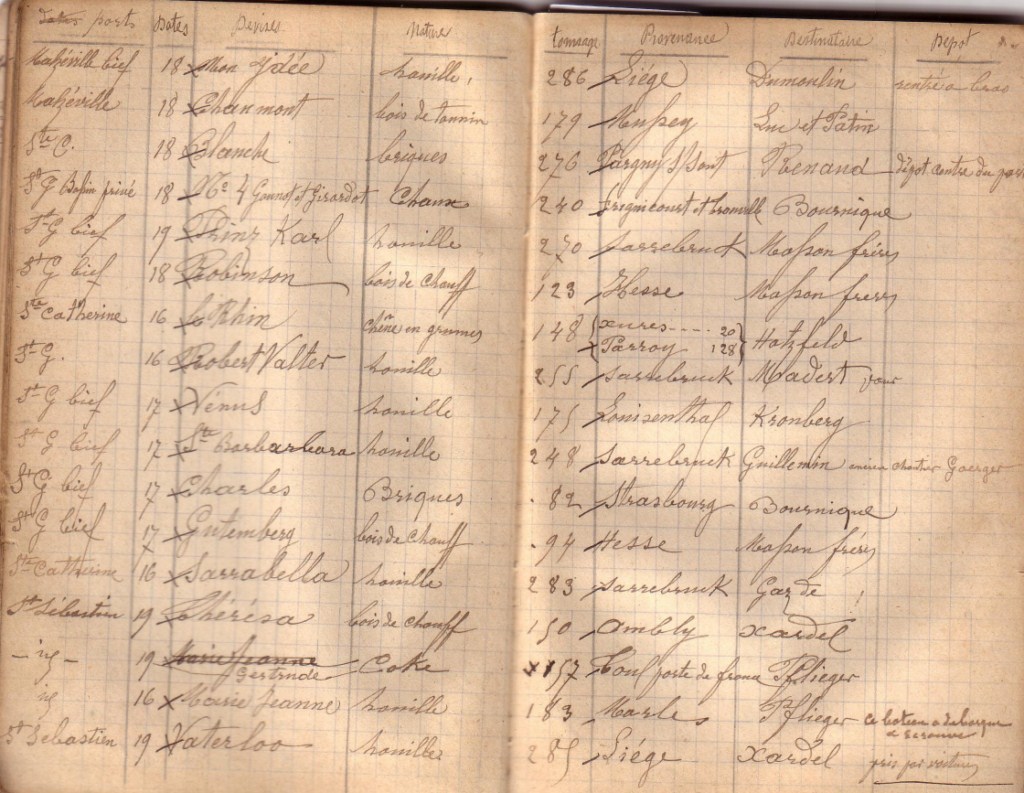 ports Dates Devises Nature tonnage Provenance Destinataire Dépôt
Malzéville bief 18 Mon Idée houille 286 Liége Dumoulin rentré à bras
Malzéville 18 Chaumont bois de tannin 179 Mussey Luc et Patin
Ste C. 18 Blanche briques 276 Pargny s/Sont Renaud dépôt contre du port
St G Bassin privé 18 No 4 Gounot et Girardot Chaux 240 et Bournique
St G bief 19 Prinz Karl houille 270 Sarrebruck Masson fréres
St G bief 18 Robinson bois de chauff 123 Hesse Masson freres
Ste Catherine 16 Le Rhin chêne en grumes 148 { Xures ---- 20
Parroy 128 } Hatzfeld
St G. 16 Robert Valter houille 255 Sarrebruck Madert
St G bief 17 Vénus houille 175 Louisenthal Kronberg
St G bief 17 Ste Barbarbara houille 248 Sarrebruck Guillemin chantier Goerger
St G bief 17 Charles Briques 82 Strasbourg Bournique
St G bief 17 Gutemberg bois de chauff 94 Hesse Masson fréres
Ste Catherine 16 Sarrabella houille 283 Sarrebruck Garde
St Sébastien 19 Thérésa bois de chauff 150 Ambly Xardel
- id - 19 Marie Jeanne Coke 157 Toul porte de france Pflieger
Gertrude
id 16 Marie Jeanne houille 183 Marles Pflieger ce bateau a
St Sébastien 19 Vaterloo houille 285 Liége Xardel pris par voitures